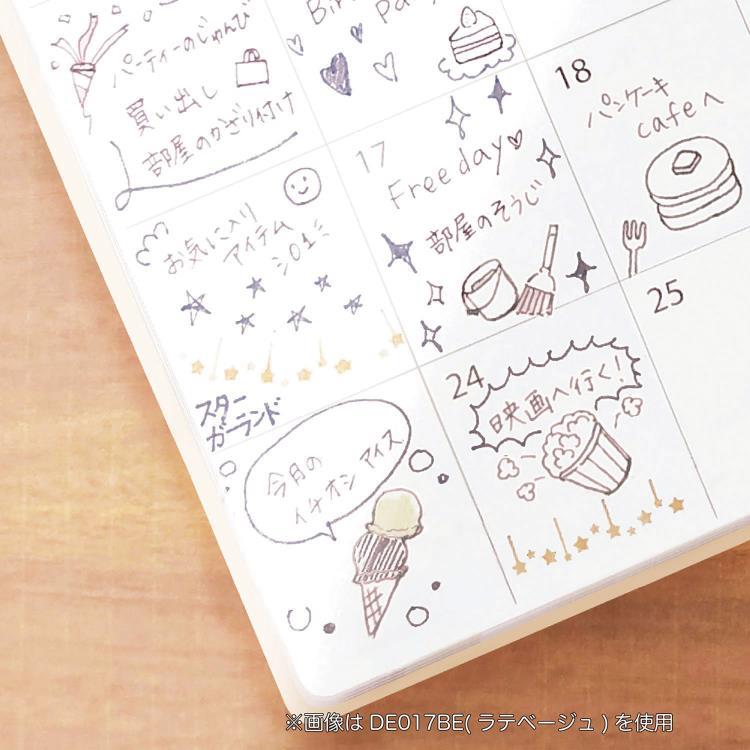 パーティーのじゅんび
買い出し
部屋のかざり付け
Bir
pa
18
パンケーキ
cafeへ
17
Free day♡
部屋のそうじ
お気に入り
アイテム
25
24
映画へ行く!
スター
ガーランド
今月の
イチオシアイス
※画像は DE017BE( ラテベージュ ) を使用